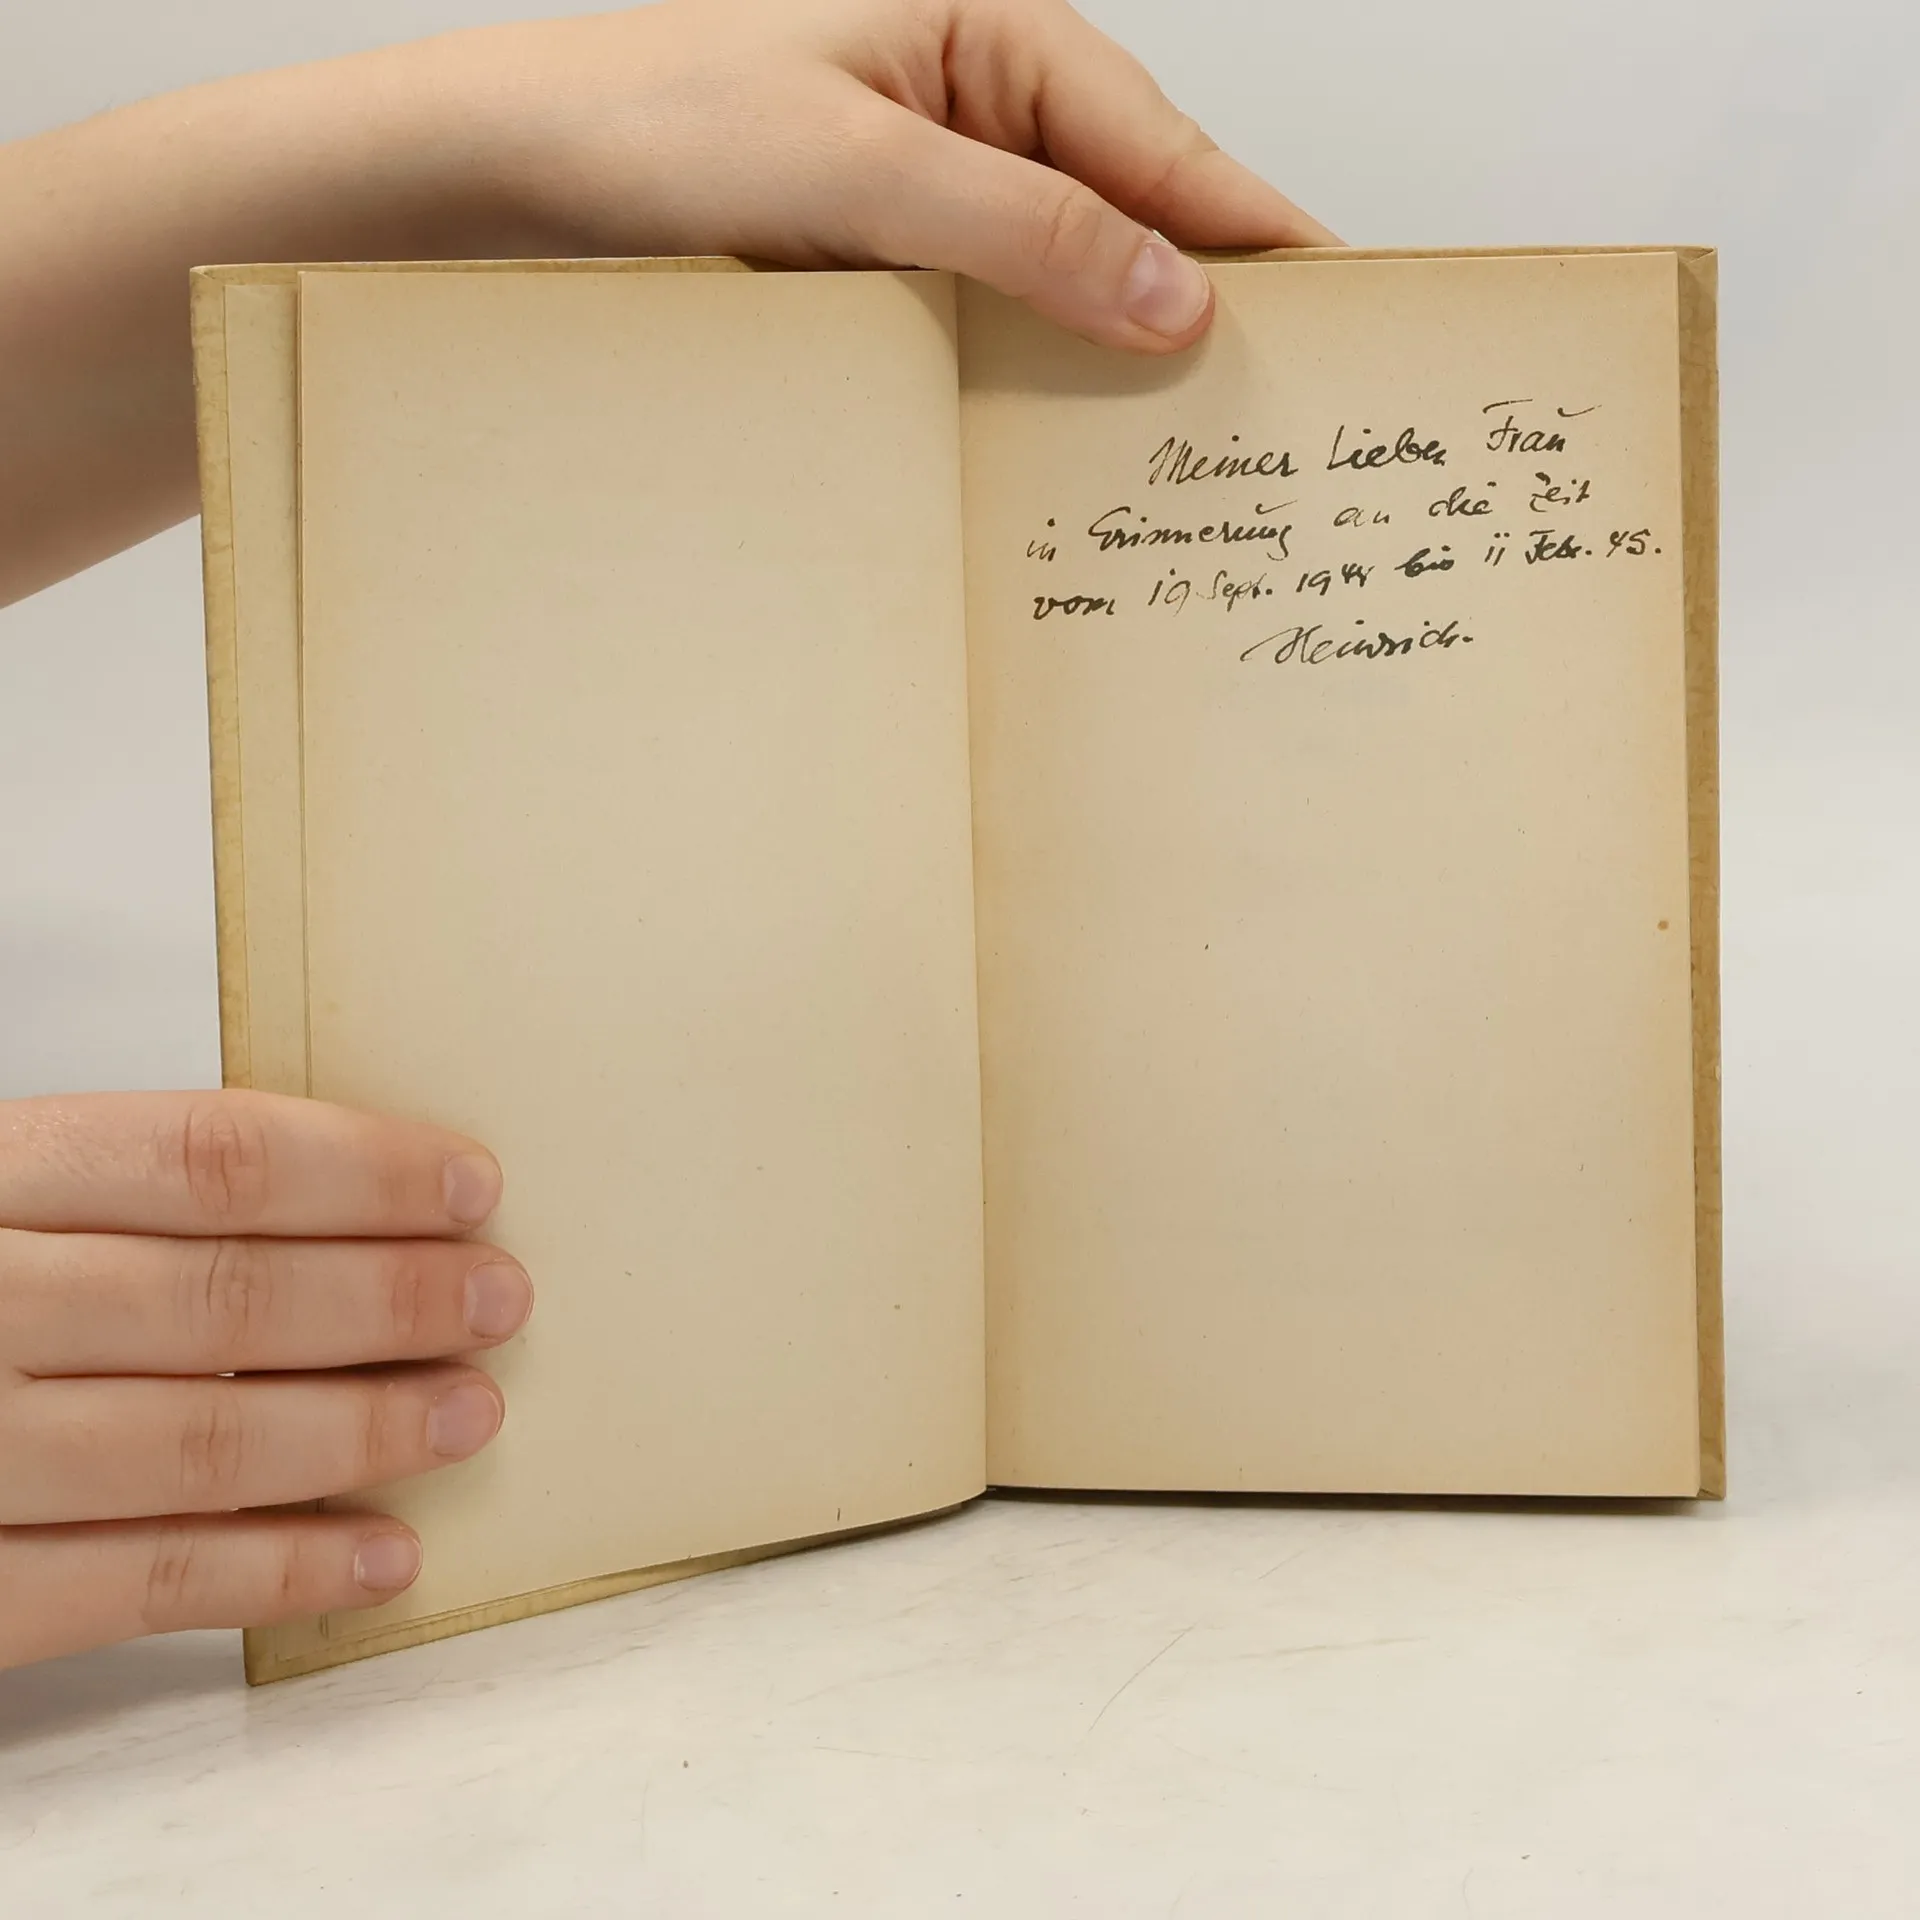 Meiner Lieben Frau
in Erinnerung an die Zeit
vom 19 Sept. 1944 bis 11 Febr. 45.
Heinrich.